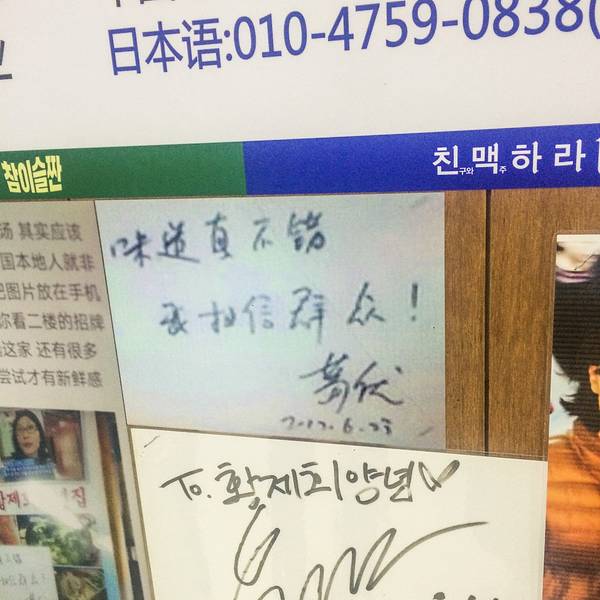 日本语:010-4759-0838(
참이슬짠
친구와 맥주 하라
场 其实应该
国本地人就非
巴图片放在手机
你看二楼的招牌
这家 还有很多
尝试才有新鲜感
味道真不错
我相信群众!
2012.6.23
To. 황제회양년♡